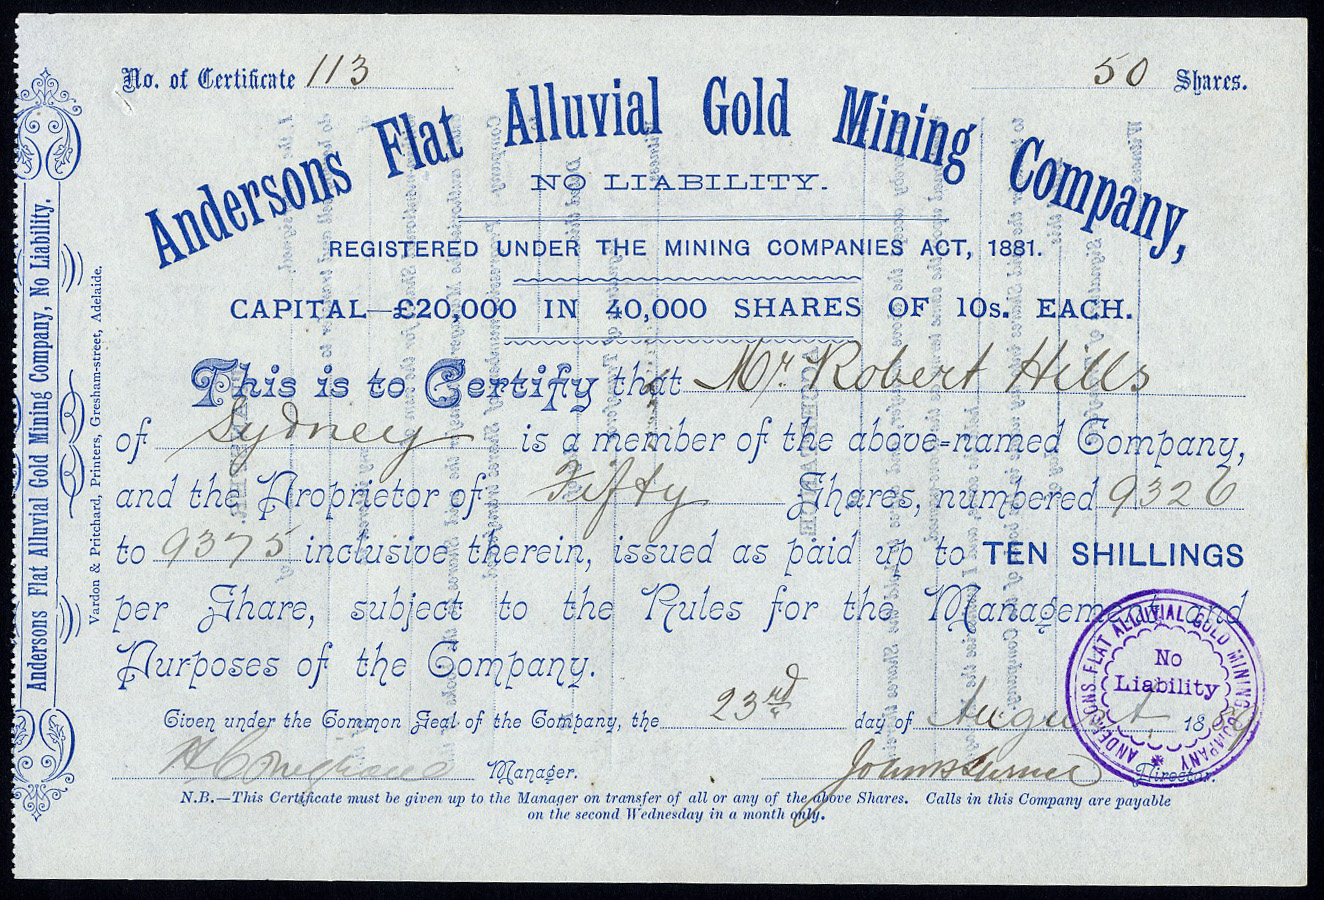 No. of Certificate 113
50 Shares.
Andersons Flat Alluvial Gold Mining Company,
NO LIABILITY.
REGISTERED UNDER THE MINING COMPANIES ACT, 1881.
CAPITAL—£20,000 IN 40,000 SHARES OF 10s. EACH.
This is to Certify that Mr. Robert Hills
of Sydney is a member of the above-named Company,
and the Proprietor of Fifty Shares, numbered 9326
to 9375 inclusive therein, issued as paid up to TEN SHILLINGS
per Share, subject to the Rules for the Management and
Purposes of the Company.
Given under the Common Seal of the Company, the 23rd day of August 1889
Manager.
Director.
N.B.—This Certificate must be given up to the Manager on transfer of all or any of the above Shares. Calls in this Company are payable
on the second Wednesday in a month only.
ANDERSONS FLAT ALLUVIAL GOLD MINING COMPANY
No
Liability
Andersons Flat Alluvial Gold Mining Company, No Liability.
Vardon & Pritchard, Printers, Gresham-street, Adelaide.